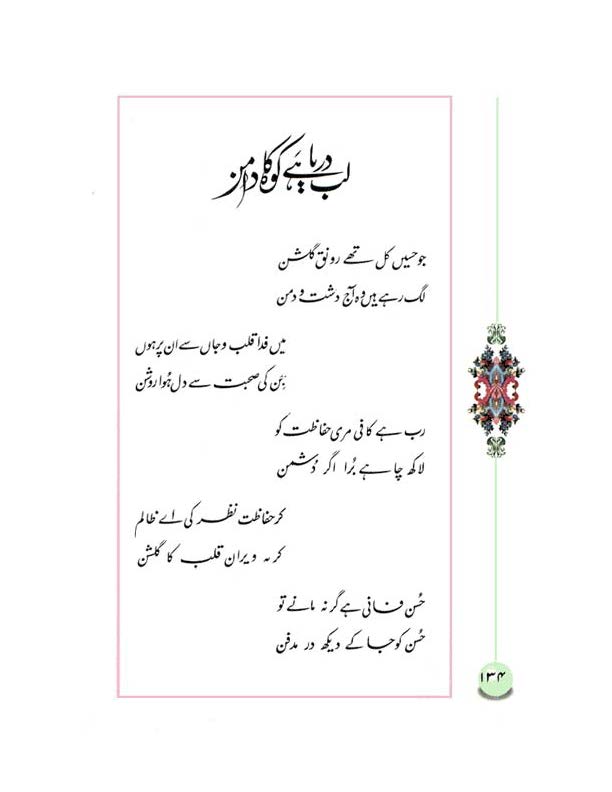 لب دریا ہے کوہ کا دامن
جو حسیں کل تھے رونق گلشن
لگ رہے ہیں وہ آج دشت و دمن
میں فدا قلب و جاں سے ان پر ہوں
جن کی صحبت سے دل ہوا روشن
رب ہے کافی مری حفاظت کو
لاکھ چاہے بُرا اگر دُشمن
کر حفاظت نظر کی اے ظالم
کر نہ ویران قلب کا گلشن
حُسن فانی ہے گر نہ مانے تو
حُسن کو جا کے دیکھ در مدفن
۱۳۴